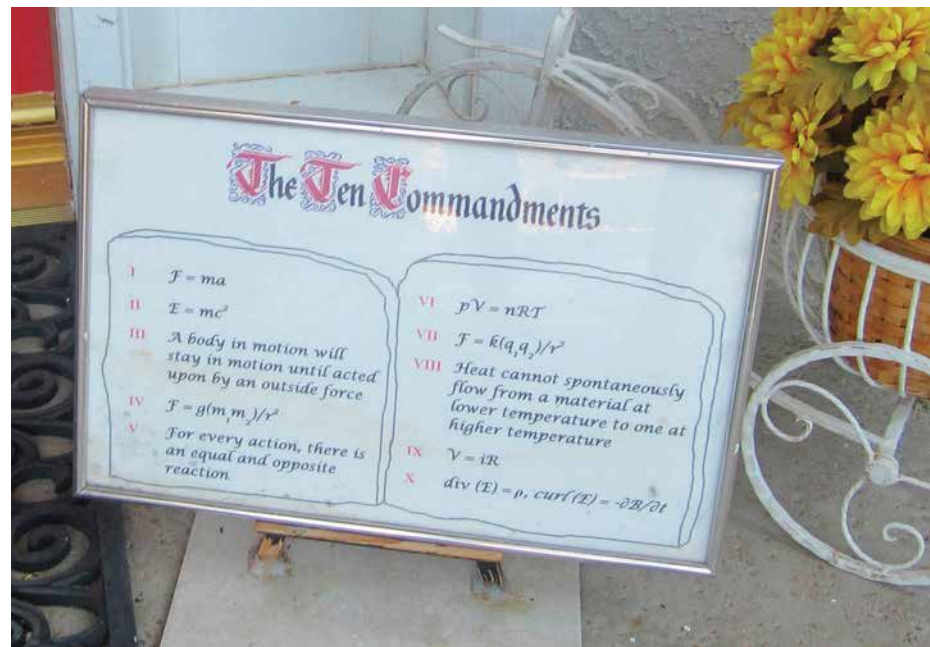 The Ten Commandments
I F = ma
II E = mc²
III A body in motion will
stay in motion until acted
upon by an outside force
IV F = g(m₁m₂)/r²
V For every action, there is
an equal and opposite
reaction
VI pV = nRT
VII F = k(q₁q₂)/r²
VIII Heat cannot spontaneously
flow from a material at
lower temperature to one at
higher temperature
IX V = iR
X div (E) = ρ, curl (E) = -∂B/∂t